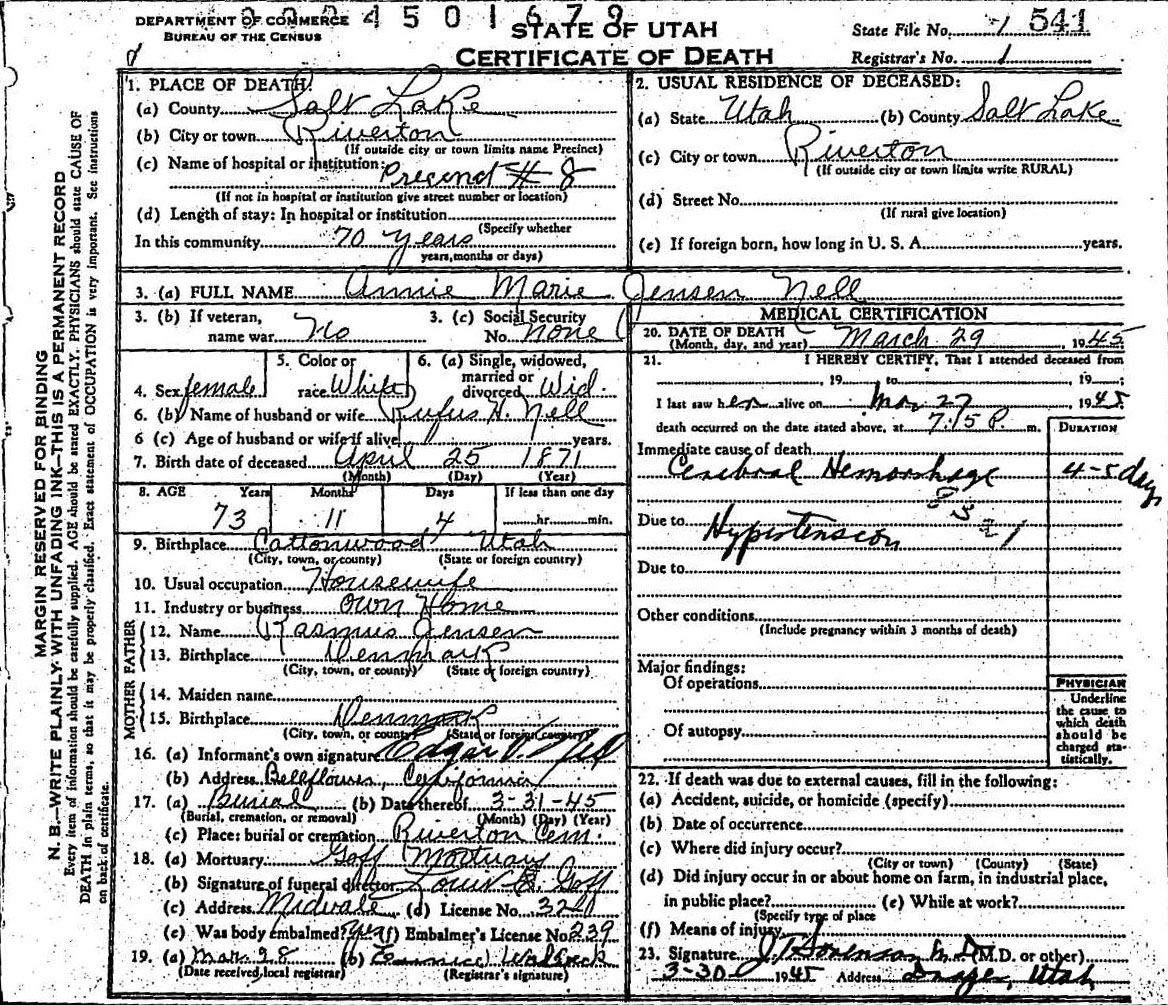 DEPARTMENT OF COMMERCE
BUREAU OF THE CENSUS
4501679
STATE OF UTAH
CERTIFICATE OF DEATH
State File No. 541
Registrar's No. 1
MARGIN RESERVED FOR BINDING
N. B.—WRITE PLAINLY WITH UNFADING INK—THIS IS A PERMANENT RECORD
Every item of information should be carefully supplied. AGE should be stated EXACTLY. PHYSICIANS should state CAUSE OF
DEATH in plain terms, so that it may be properly classified. Exact statement of OCCUPATION is very important. See instructions
on back of certificate.
1. PLACE OF DEATH:
(a) County Salt Lake
(b) City or town Riverton
(If outside city or town limits name Precinct)
(c) Name of hospital or institution:
Precinct # 8
(If not in hospital or institution give street number or location)
(d) Length of stay: In hospital or institution
(Specify whether
In this community 70 years
years, months or days)
2. USUAL RESIDENCE OF DECEASED:
(a) State Utah (b) County Salt Lake
(c) City or town Riverton
(If outside city or town limits write RURAL)
(d) Street No.
(If rural give location)
(e) If foreign born, how long in U. S. A. years.
3. (a) FULL NAME Annie Marie Jensen Nell
3. (b) If veteran, name war No
3. (c) Social Security No. none
4. Sex female
5. Color or race White
6. (a) Single, widowed, married or divorced Wid.
6. (b) Name of husband or wife Rufus H. Nell
6 (c) Age of husband or wife if alive years.
7. Birth date of deceased April 25 1871
(Month) (Day) (Year)
8. AGE Years Months Days If less than one day
73 11 4 hr. min.
9. Birthplace Cottonwood Utah
(City, town, or county) (State or foreign country)
10. Usual occupation Housewife
11. Industry or business Own Home
FATHER
12. Name Rasmus Jensen
13. Birthplace Denmark
(City, town, or county) (State or foreign country)
MOTHER
14. Maiden name
15. Birthplace Denmark
(City, town, or county) (State or foreign country)
16. (a) Informant's own signature Edgar V. Nell
(b) Address Bellflower, California
17. (a) Burial (b) Date thereof 3-31-45
(Burial, cremation, or removal) (Month) (Day) (Year)
(c) Place: burial or cremation Riverton Cem.
18. (a) Mortuary Goff Mortuary
(b) Signature of funeral director Goff
(c) Address Midvale (d) License No. 3240
(e) Was body embalmed? yes (f) Embalmer's License No. 239
19. (a) Mar. 28 (b)
(Date received local registrar) (Registrar's signature)
MEDICAL CERTIFICATION
20. DATE OF DEATH March 29, 1945
(Month, day, and year)
21. I HEREBY CERTIFY, That I attended deceased from
, 19 to , 19 ;
I last saw her alive on Mar 27 1945
death occurred on the date stated above, at 7:15 P. m.
DURATION
Immediate cause of death
Cerebral Hemorrhage 4-5 days
83
Due to Hypertension
Due to
Other conditions
(Include pregnancy within 3 months of death)
Major findings:
Of operations
Of autopsy
PHYSICIAN
Underline
the cause to
which death
should be
charged sta-
tistically.
22. If death was due to external causes, fill in the following:
(a) Accident, suicide, or homicide (specify)
(b) Date of occurrence
(c) Where did injury occur?
(City or town) (County) (State)
(d) Did injury occur in or about home on farm, in industrial place,
in public place? (e) While at work?
(Specify type of place
(f) Means of injury
23. Signature Sorenson M.D. (M.D. or other)
3-30 1945 Address Draper, Utah